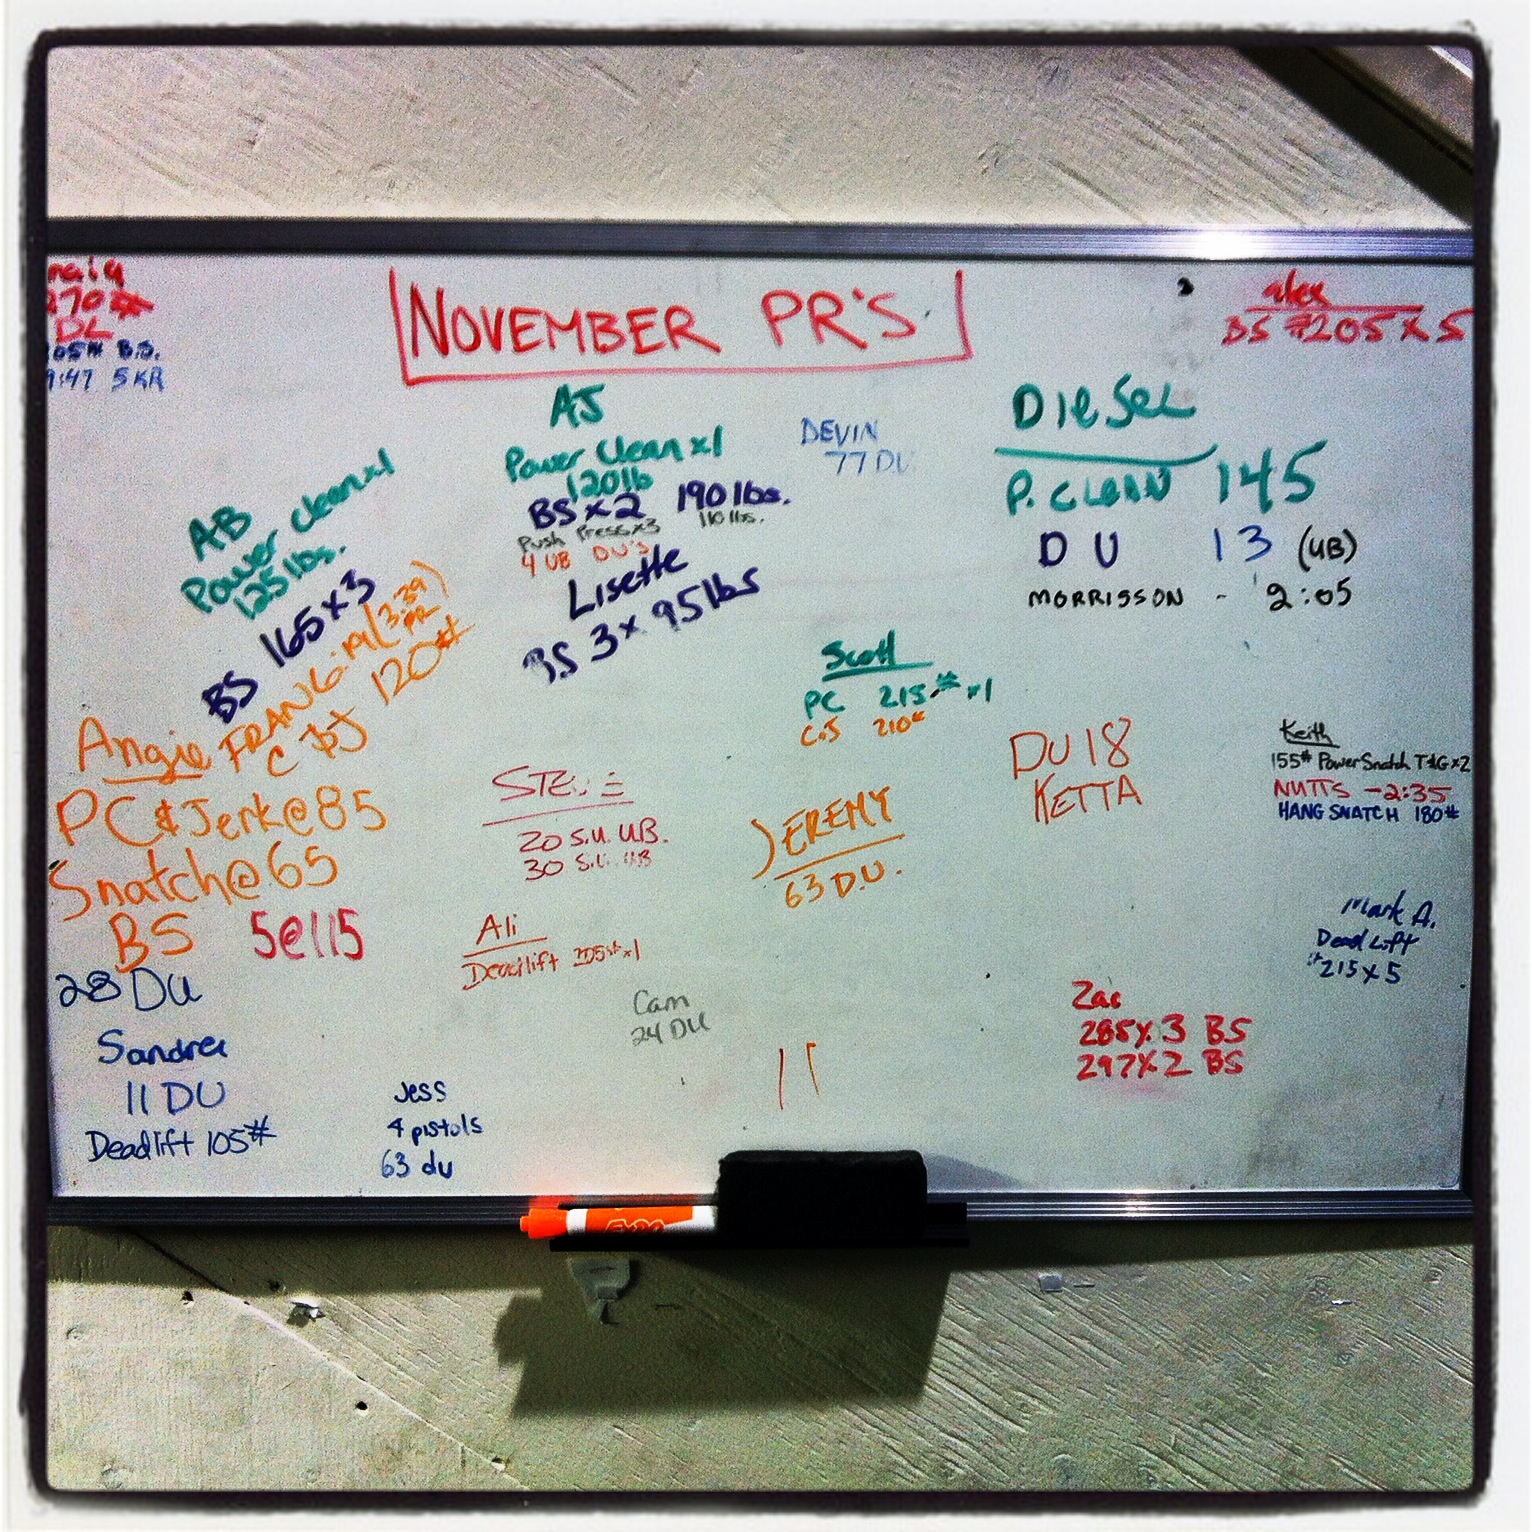 270#
DL
B.S.
5 KR
NOVEMBER PR'S
alex
BS #205 x 5
AB
Power Clean x1
125 lbs.
BS 165 x 3
AJ
Power Clean x1
120lb
BS x 2 190 lbs.
Push Press x3 110 lbs.
4 UB DU's
Lisette
BS 3 x 95 lbs
DEVIN
77 DU
DIESEL
P. CLEAN 145
DU 13 (UB)
MORRISSON - 2:05
Scott
PC 215.# x1
C&J 210#
Angie FRAN 6:19 (3:39 PR)
C & J 120#
PC & Jerk @ 85
Snatch @ 65
BS 5@115
28 DU
Sandra
11 DU
Deadlift 105#
STEVE
20 S.U. U.B.
30 S.U. UB
JEREMY
63 D.U.
DU 18
KETTA
Keith
155# Power Snatch T&G x2
NUTTS - 2:35
HANG SNATCH 180#
Ali
Deadlift 205# x1
Cam
24 DU
Mark A.
Dead Lift
#215 x 5
Zac
285 x 3 BS
297 x 2 BS
Jess
4 pistols
63 du
EXPO